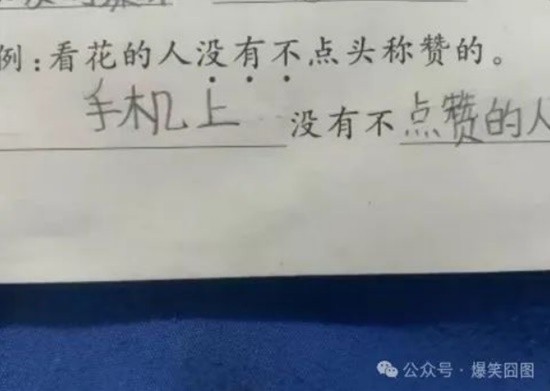 例:看花的人没有不点头称赞的。
手机上没有不点赞的人
公众号·爆笑囧图